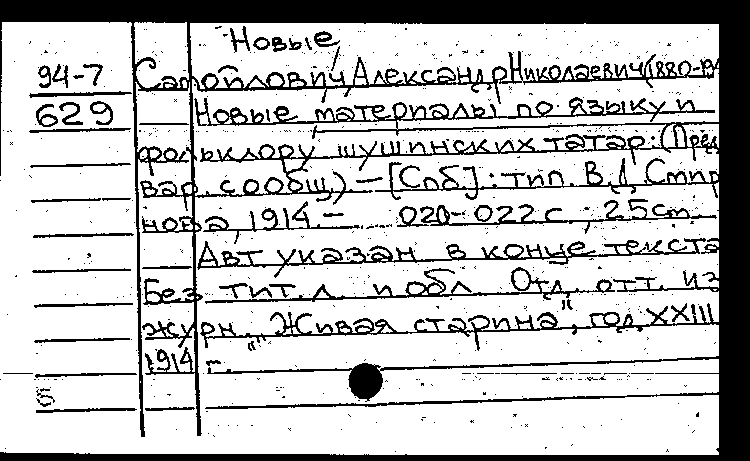 Новые
94-7 Самойлович, Александр Николаевич (1880-194
629 Новые материалы по языку и
фольклору шушинских татар: (Пред
вар. сообщ) — [Спб]: тип. В.Д. Смир
нова, 1914. — 020-022 с ; 25 cm.
Авт указан в конце текста
Без тит. л. и обл Отд. отт. из
журн. "Живая старина", год XXIII
1914 г.